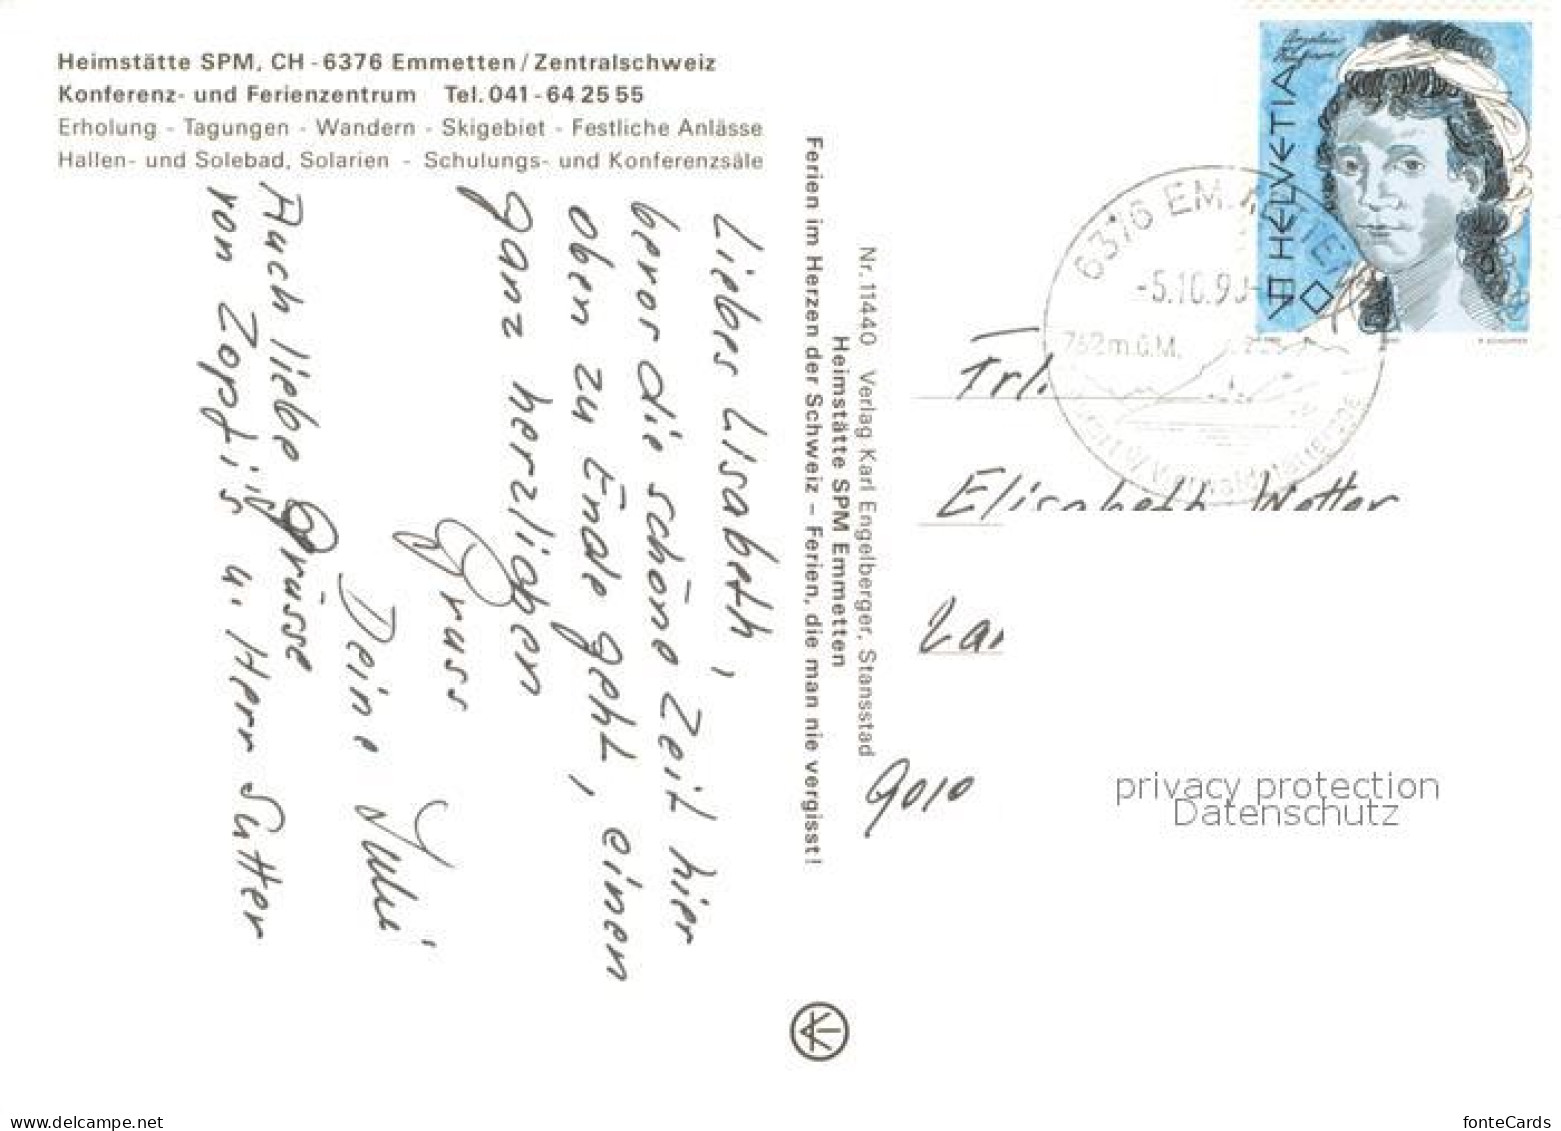 Heimstätte SPM, CH - 6376 Emmetten / Zentralschweiz
Konferenz- und Ferienzentrum Tel. 041 - 64 25 55
Erholung - Tagungen - Wandern - Skigebiet - Festliche Anlässe
Hallen- und Solebad, Solarien - Schulungs- und Konferenzsäle
Liebes Lisabeth,
bevor die schöne Zeit hier
oben zu Ende geht, einen
ganz herzlichen
Gruss
Deine
Auch liebe Grüsse
von Zopfi's u. Herr Sutter
Ferien im Herzen der Schweiz – Ferien, die man nie vergisst!
Heimstätte SPM Emmetten
Nr. 11440 Verlag Karl Engelberger, Stansstad
HELVETIA
6376 EMMETTEN
-5.10.90-
762 m.ü.M.
Vierwaldstättersee
Frl.
Elisabeth
9010
privacy protection
Datenschutz
delcampe.net
fonteCards